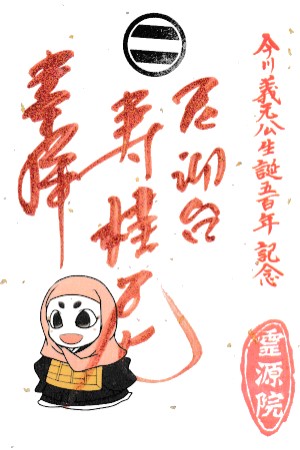 今川義元公生誕五百年 記念
霊源院
尼御台
寿桂尼
奉拝